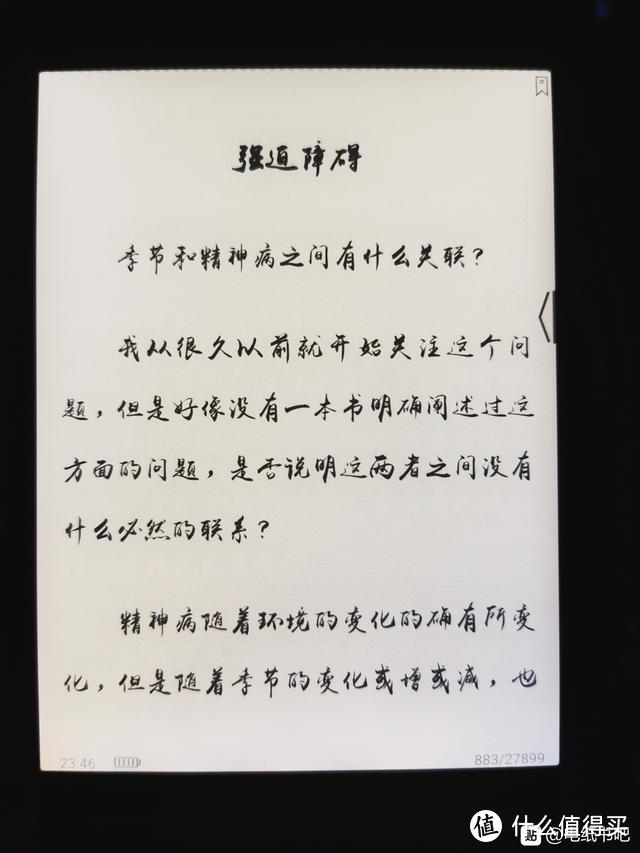 强迫障碍
季节和精神病之间有什么关联？
我从很久以前就开始关注这个问
题，但是好像没有一本书明确阐述过这
方面的问题，是否说明这两者之间没有
什么必然的联系？
精神病随着环境的变化的确有所变
化，但是随着季节的变化或增或减，也
23:46
883/27899
值 什么值得买
贴 @电纸书吧